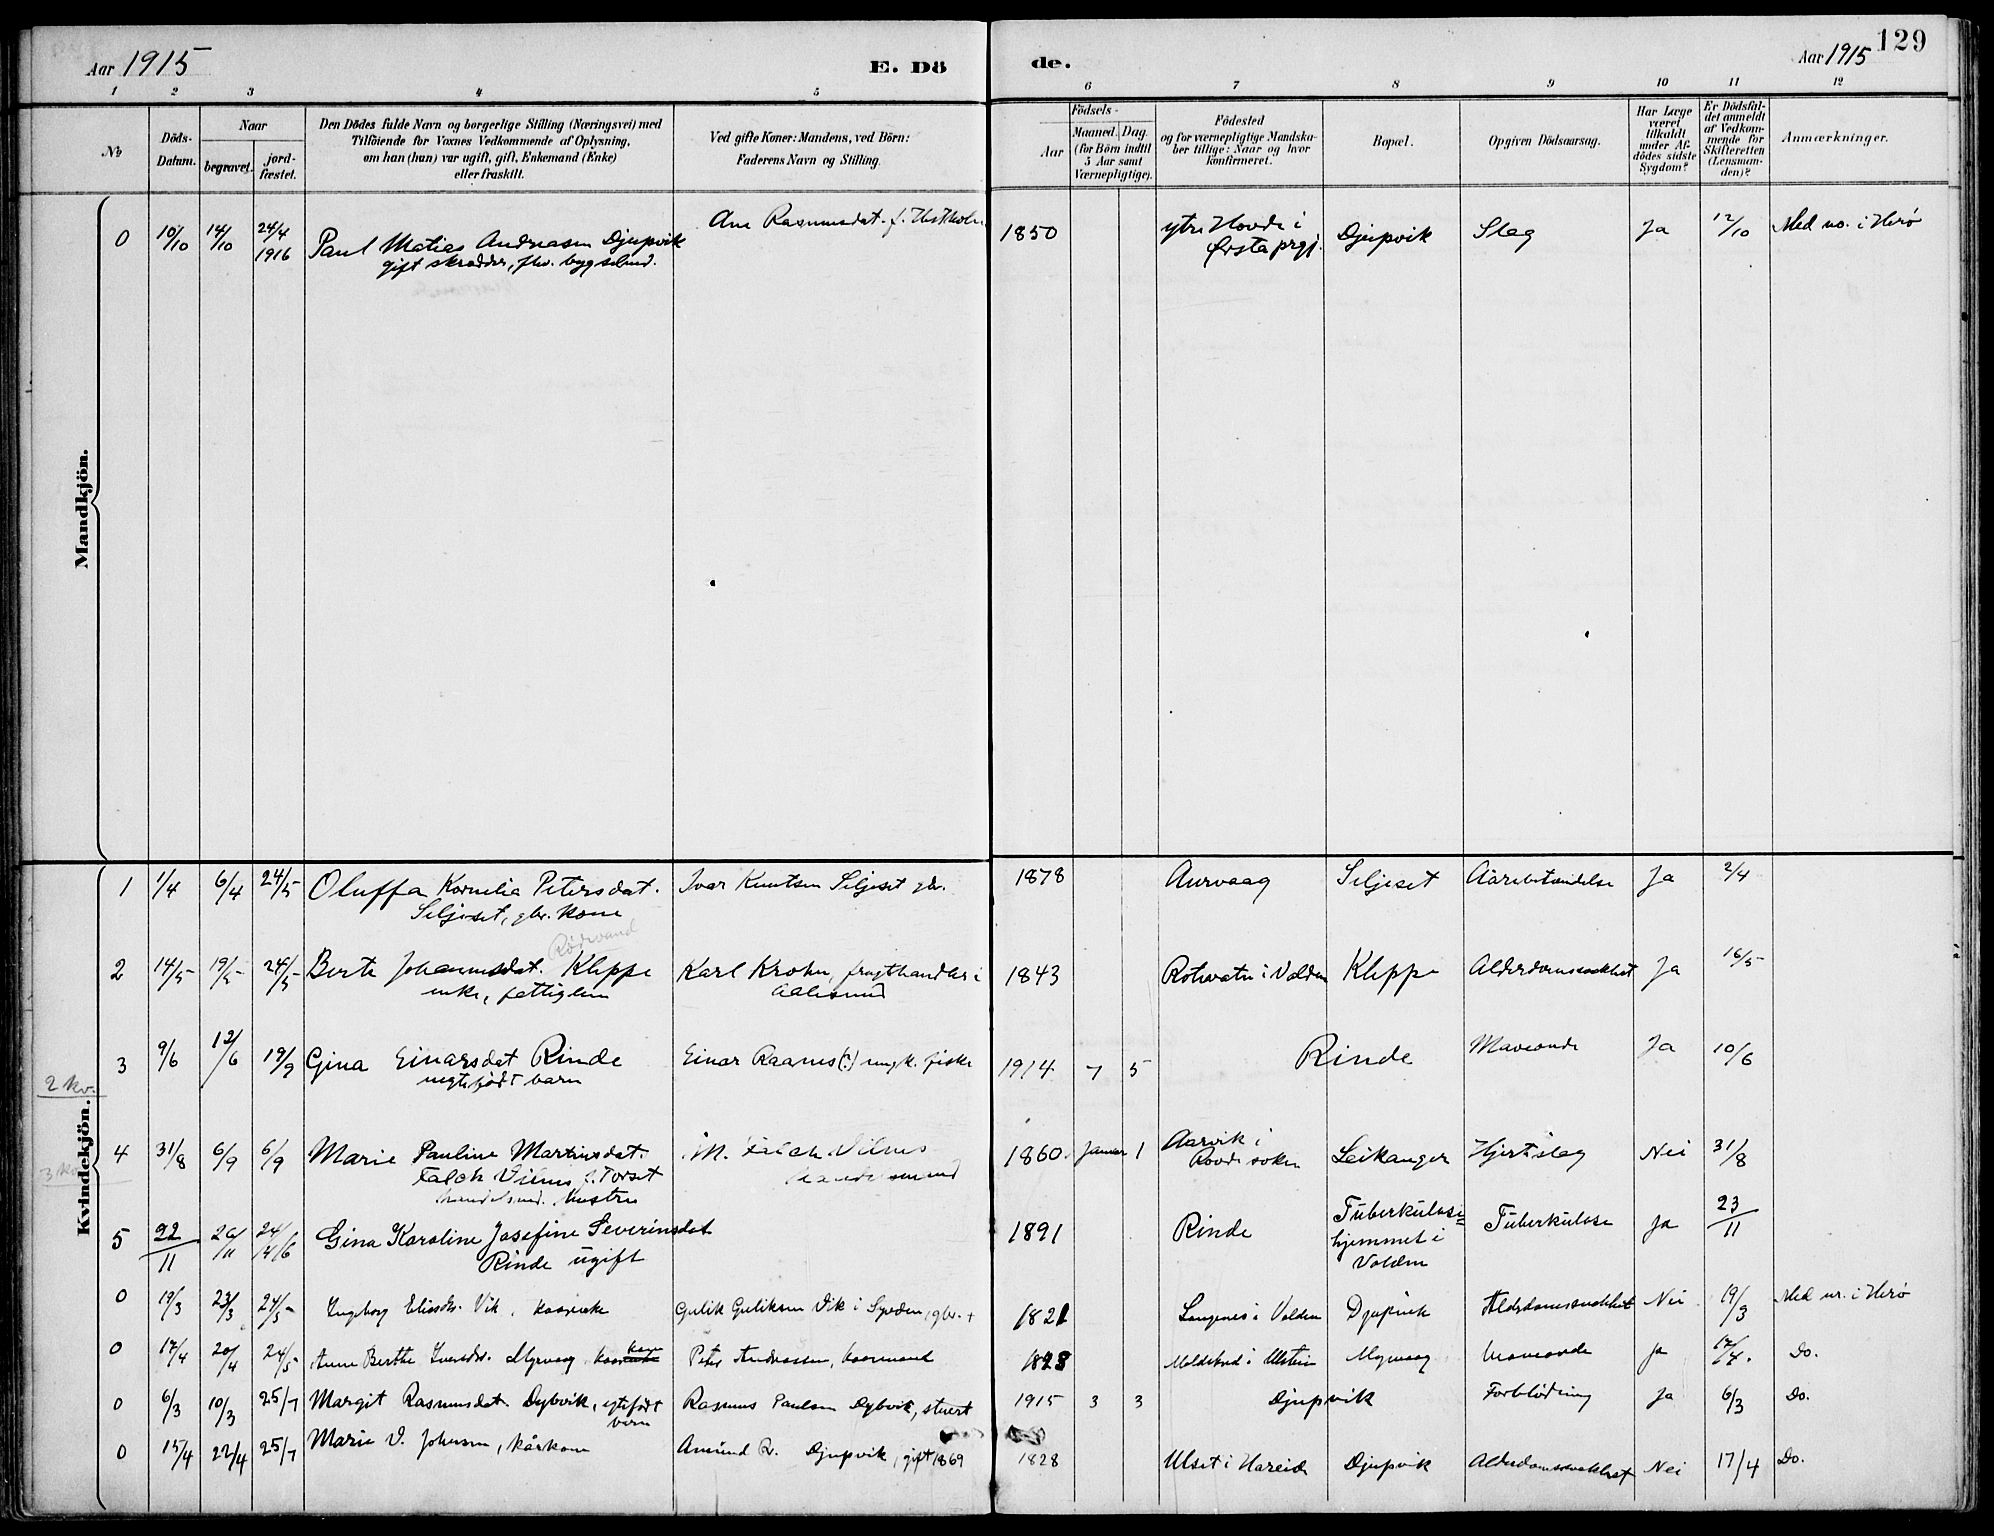 Aar 1915
E. Dö
de.
Aar 1915
129
1 2 3 4 5 6 7 8 9 10 11 12
No
Döds-
Datum.
Naar
begravet.
jord-
fæstet.
Den Dödes fulde Navn og borgerlige Stilling (Næringsvei) med
Tilföiende for Voxnes Vedkommende af Oplysning,
om han (hun) var ugift, gift, Enkemand (Enke)
eller fraskilt.
Ved gifte Koner: Mandens, ved Börn:
Faderens Navn og Stilling.
Födsels-
Aar
Maaned. Dag.
(for Börn indtil
5 Aar samt
Værnepligtige).
Födested
og for værnepligtige Mandska-
ber tillige: Naar og hvor
konfirmeret.
Bopæl.
Opgiven Dödsaarsag.
Har Læge
været
tilkaldt
under Af-
dödes sidste
Sygdom?
Er Dödsfal-
det anmeldt
af Vedkom-
mende for
Skifteretten
(Lensman-
den)?
Anmærkninger.
Mandkjön.
0 10/10 14/10 24/4 1916 Paul Matias Andreasen Djupvik Ane Rasmusdat. f. 1850 ytre Hovde i Djupvik Slag Ja 12/10 Med nr. i Herø
gift skrædder, fhv. bygselmd. Ørsta prgj.
Kvindekjön.
1 1/4 6/4 24/5 Oluffa Kornelia Petersdat. Ivar Knutsen Seljeset gbr. 1878 Aurvaag Seljeset Aarebetændelse Ja 2/4
Seljeset, gbr. kone
Rødevand
2 14/5 19/5 24/5 Berte Johannesdat. Klippe Karl Krohn, frugthandler i 1843 Rotevatn i Volden Klippe Alderdomssvakhet Ja 16/5
enke, fattiglem Aalesund
3 9/6 12/6 19/9 Gina Einarsdat Rinde Einar Raanes(?) ungk. fisker 1914 7 5 Rinde Maveonde Ja 10/6
uegtefødt barn
2 kv.
4 31/8 6/9 6/9 Marie Pauline Martinsdat. M. Falch Vilnes 1860 Januar 1 Aarvik i Leikanger Hjerteslag Nei 31/8
Falch Vilnes f. Torset handelsmand Rovde sokn
handelsmd. hustru
3 kv.
5 22/11 26/11 24/4 16 Gina Karoline Josefine Severinsdat 1891 Rinde Tuberkulose= Tuberkulose Ja 23/11
Rinde ugift hjemmet i
Volden
0 19/3 23/3 24/5 Ingeborg Eliasdr. Vik, kaarenke Gulik Guliksen Vik i Syvden, gbr. + 1821 Langenes i Volden Djupvik Alderdomssvakhet Nei 19/3 Med nr. i Herø
0 17/4 20/4 24/5 Anne Berthe Iversdr. Myrvaag kaar kone Peter Andreassen, kaarmand 1828 i Ulstein Myrvaag Maveonde Ja 17/4. Do.
0 6/3 10/3 25/7 Margit Rasmusdat. Dybvik, egtefødt Rasmus Paulsen Dybvik, stuert 1915 3 3 Djupvik Forblødning Ja 6/3 Do.
barn
0 15/4 22/4 25/7 Marie V. Johnsen, kårkone Amund R. Djupvik, gift 1869 1828 Ulset i Hareide Djupvik Alderdomssvakhet Nei 17/4 Do.